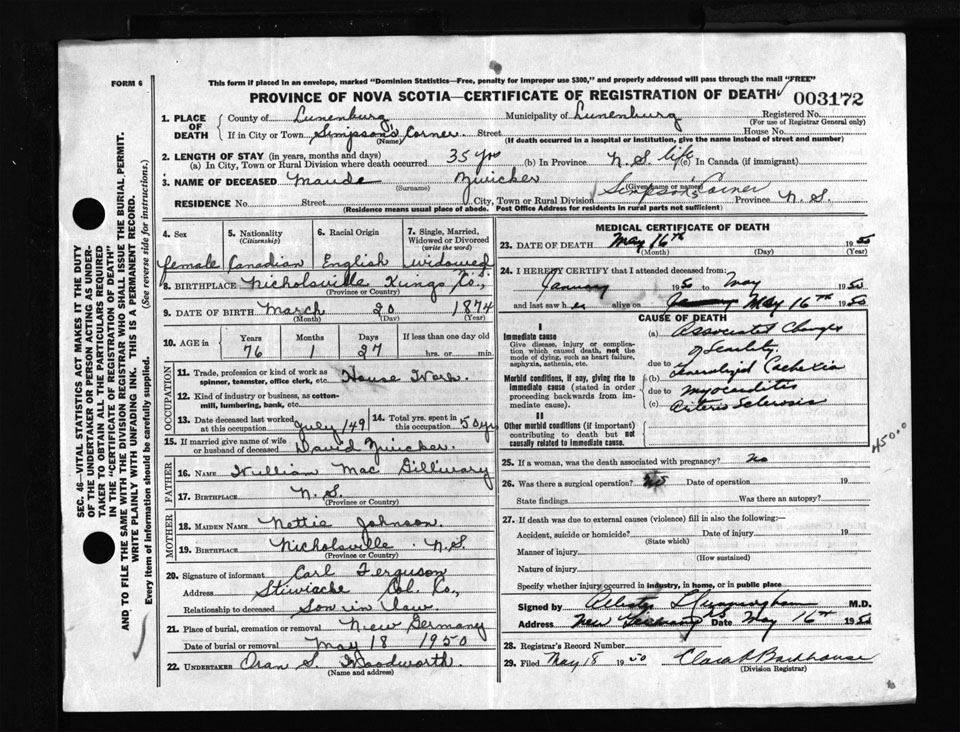 FORM 6
This form if placed in an envelope, marked "Dominion Statistics—Free, penalty for improper use $300," and properly addressed will pass through the mail "FREE"
PROVINCE OF NOVA SCOTIA—CERTIFICATE OF REGISTRATION OF DEATH 003172
1. PLACE OF DEATH { County of Lunenburg Municipality of Lunenburg Registered No.
(For use of Registrar General only)
If in City or Town Simpson's Corner Street House No.
(Name) (If death occurred in a hospital or institution, give the name instead of street and number)
2. LENGTH OF STAY (in years, months and days)
(a) In City, Town or Rural Division where death occurred 35 yrs (b) In Province N.S. life (c) In Canada (if immigrant)
3. NAME OF DECEASED Maude Zwicker
(Surname) (Given name or names)
RESIDENCE No. Street City, Town or Rural Division Simpson's Corner Province N.S.
(Residence means usual place of abode. Post Office Address for residents in rural parts not sufficient)
4. Sex 5. Nationality (Citizenship) 6. Racial Origin 7. Single, Married, Widowed or Divorced (write the word)
female Canadian English widowed
8. BIRTHPLACE Nicholsville Kings Co.,
(Province or Country)
9. DATE OF BIRTH March 20 1874
(Month) (Day) (Year)
10. AGE in Years Months Days If less than one day old
76 1 27 hrs. or min.
OCCUPATION
11. Trade, profession or kind of work as spinner, teamster, office clerk, etc. House Work
12. Kind of industry or business, as cotton-mill, lumbering, bank, etc.
13. Date deceased last worked at this occupation July 149 14. Total yrs. spent in this occupation 50 yrs
15. If married give name of wife or husband of deceased David Zwicker
FATHER
16. NAME William Mac Gillivary
17. BIRTHPLACE N.S.
(Province or Country)
MOTHER
18. MAIDEN NAME Nettie Johnson
19. BIRTHPLACE Nicholsville N.S.
(Province or Country)
20. Signature of informant Carl Ferguson
Address Stewiacke Col. Co.,
Relationship to deceased Son in law
21. Place of burial, cremation or removal New Germany
Date of burial or removal May 18 1950
22. UNDERTAKER Oran S. Woodworth
(Name and address)
MEDICAL CERTIFICATE OF DEATH
23. DATE OF DEATH May 16th 1950
(Month) (Day) (Year)
24. I HEREBY CERTIFY that I attended deceased from:
January 1950 to May 1950
and last saw her alive on May 16th 1950
CAUSE OF DEATH
I
Immediate cause
Give disease, injury or complication which caused death, not the mode of dying, such as heart failure, asphyxia, asthenia, etc.
(a) Associated Changes of Senility
due to
Morbid conditions, if any, giving rise to immediate cause (stated in order proceeding backwards from immediate cause).
(b) Generalized Cachexia
due to myocarditis
(c) Arterio Sclerosis
II
Other morbid conditions (if important) contributing to death but not causally related to immediate cause.
450.0
25. If a woman, was the death associated with pregnancy? No
26. Was there a surgical operation? No Date of operation 19
State findings Was there an autopsy?
27. If death was due to external causes (violence) fill in also the following:—
Accident, suicide or homicide? Date of injury 19
(State which)
Manner of injury
(How sustained)
Nature of injury
Specify whether injury occurred in industry, in home, or in public place
Signed by Cunningham M.D.
Address New Germany NS Date May 16th 1950
28. Registrar's Record Number
29. Filed May 18 1950 Clara Backhouse
(Division Registrar)
SEC. 46—VITAL STATISTICS ACT MAKES IT THE DUTY
OF THE UNDERTAKER OR PERSON ACTING AS UNDER-
TAKER TO OBTAIN ALL THE PARTICULARS REQUIRED
IN THE "CERTIFICATE OF REGISTRATION OF DEATH"
AND TO FILE THE SAME WITH THE DIVISION REGISTRAR WHO SHALL ISSUE THE BURIAL PERMIT.
WRITE PLAINLY WITH UNFADING INK. THIS IS A PERMANENT RECORD.
Every item of information should be carefully supplied. (See reverse side for instructions.)